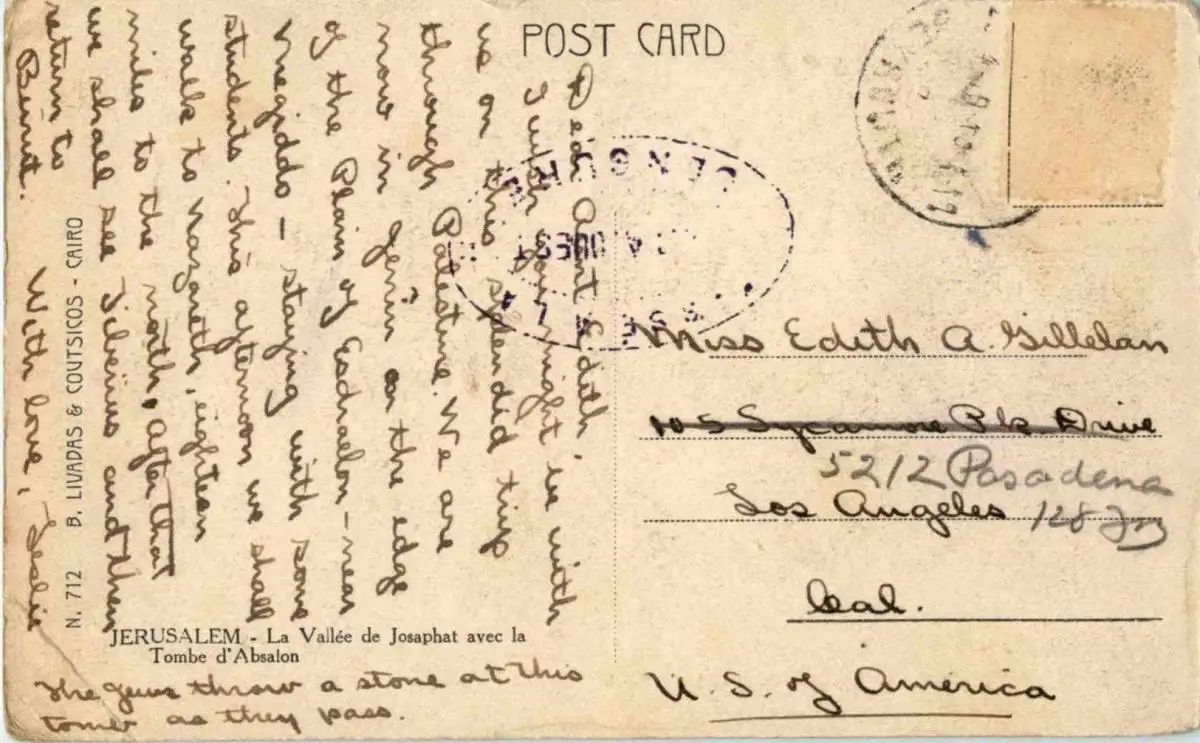 POST CARD
Dear Aunt Edith,
I wish you might be with
me on this splendid trip
through Palestine. We are
now in Jenin on the edge
of the Plain of Esdraelon - near
Megiddo - staying with some
students. This afternoon we shall
walk to Nazareth, eighteen
miles to the north, after that
we shall see Tiberius and then
return to
Beirut.
With love, Leslie
N. 712 B. LIVADAS & COUTSICOS - CAIRO
JERUSALEM - La Vallée de Josaphat avec la
Tombe d'Absalon
The Jews throw a stone at this
tomb as they pass.
Miss Edith A. Gillelan
105 Sycamore Pk Drive
5212 Pasadena
Los Angeles 128
Cal.
U. S. of America